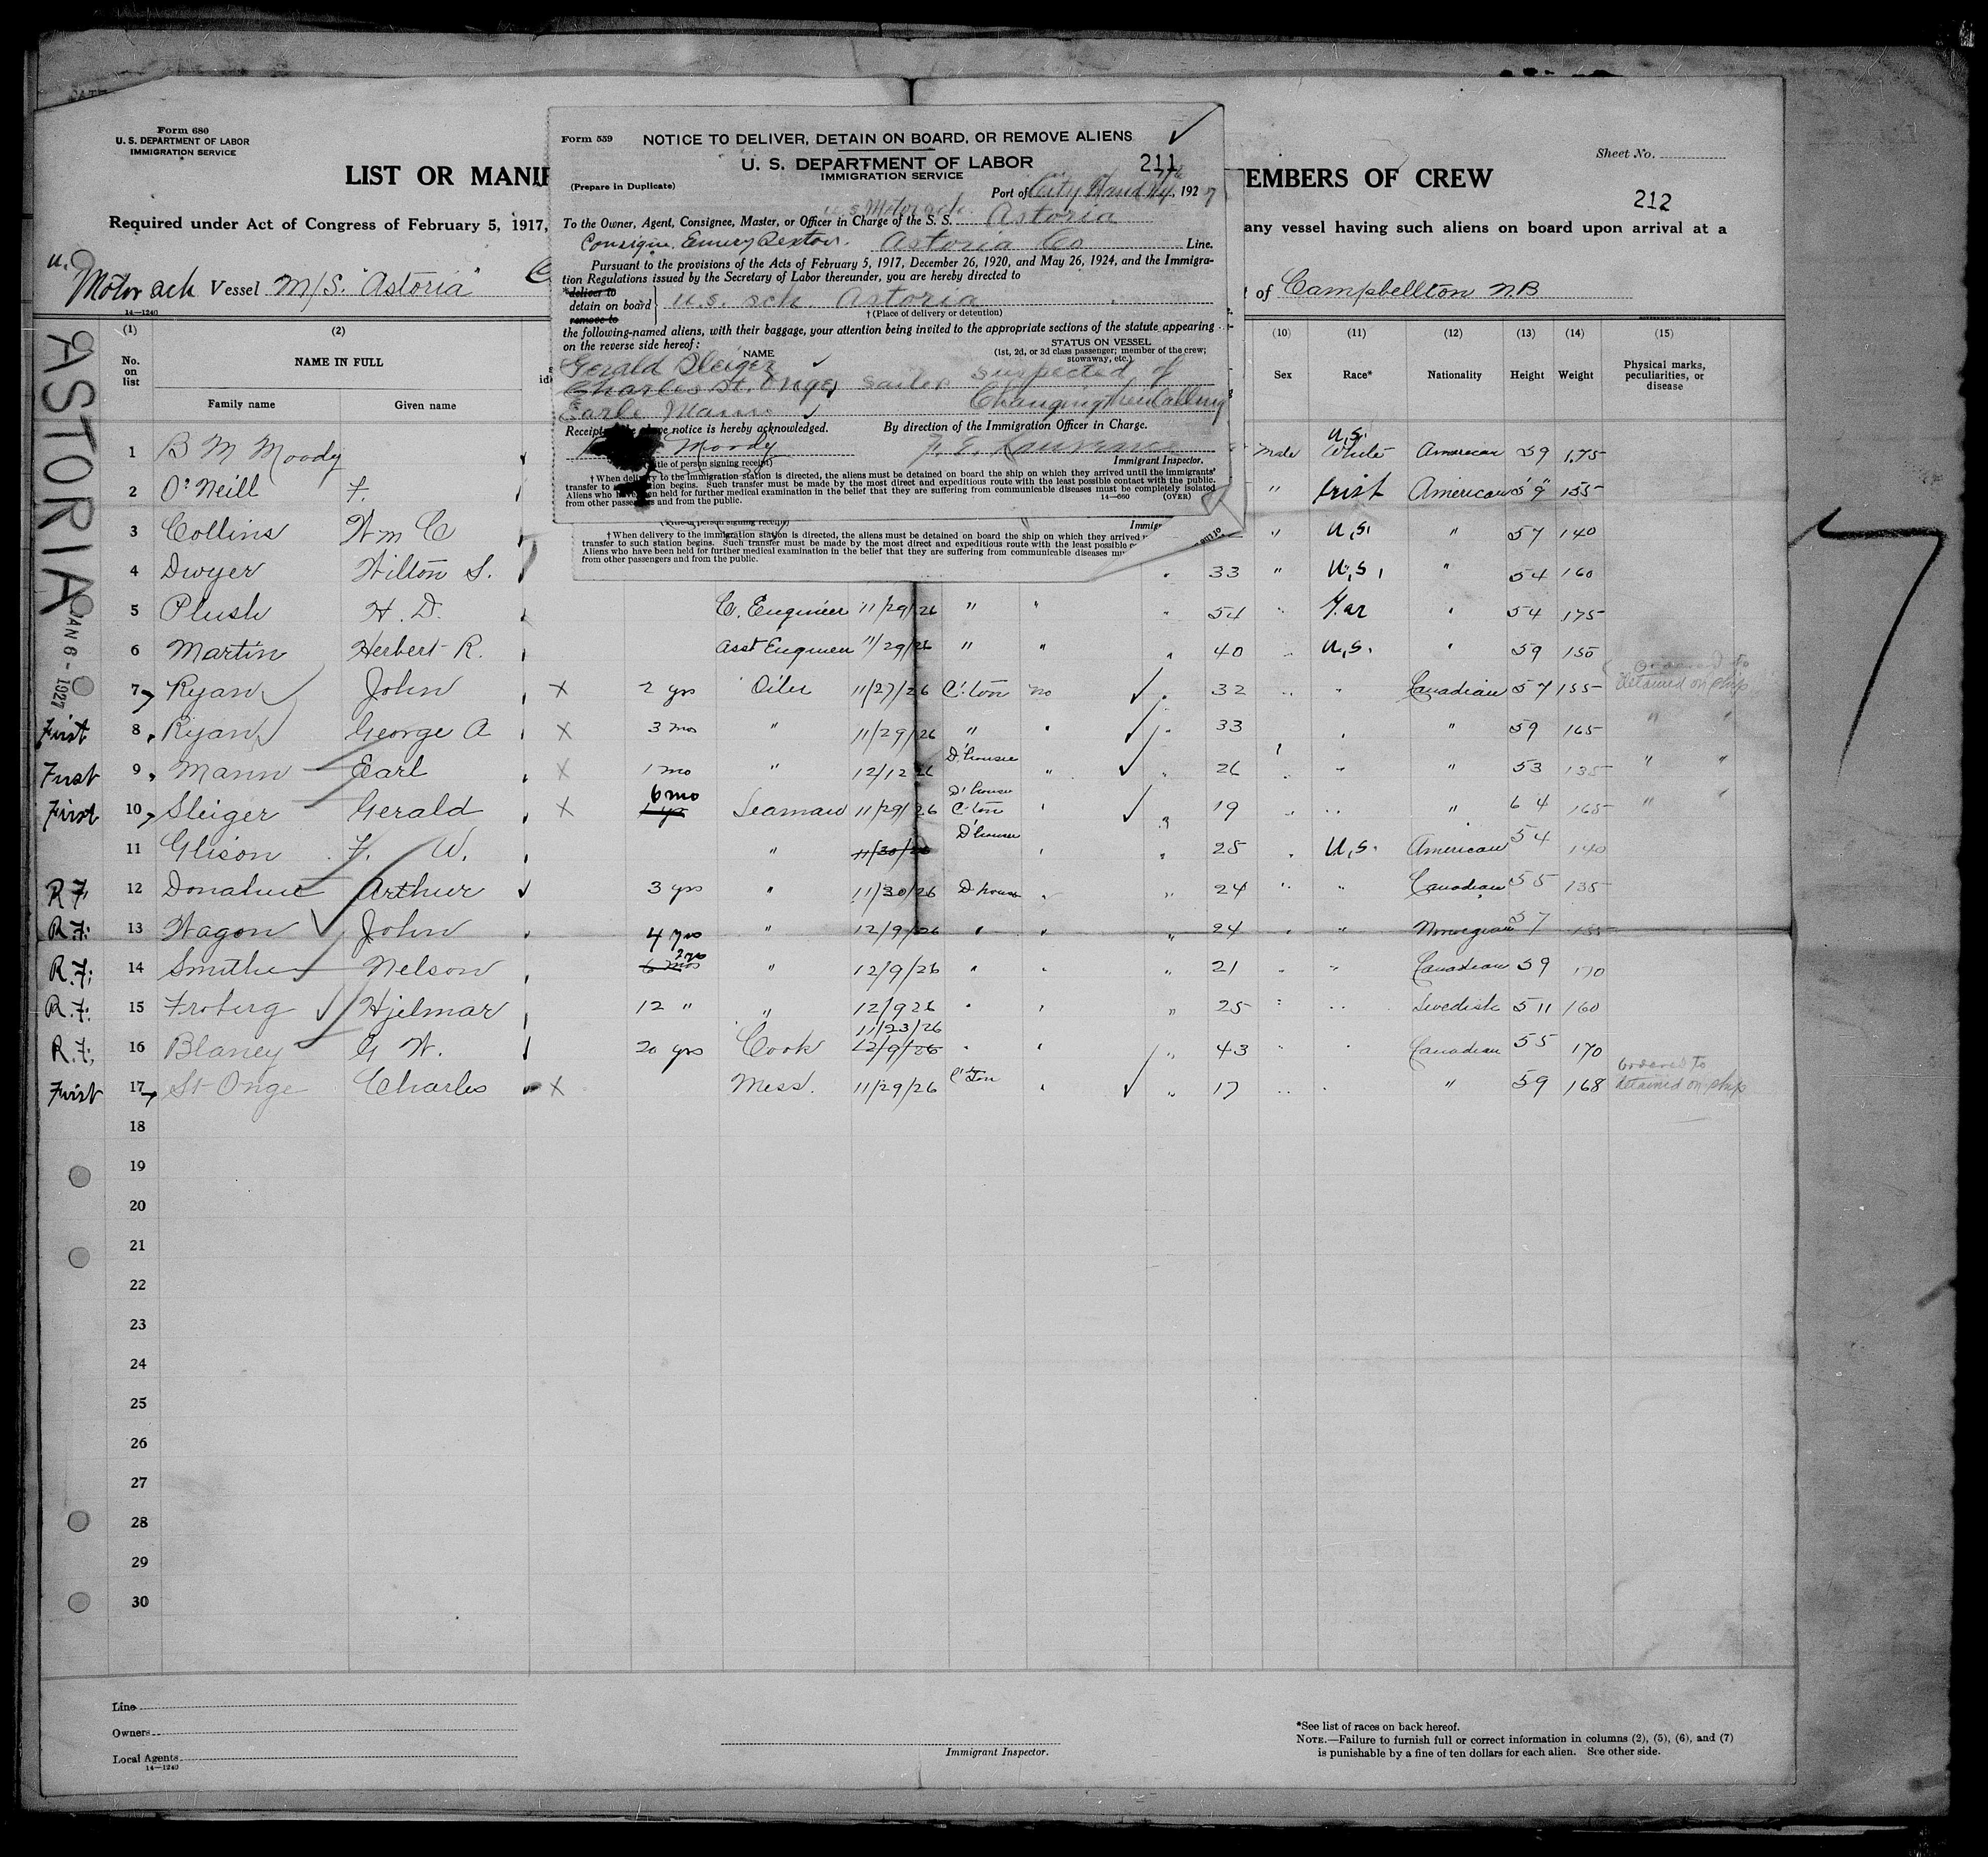 Form 680
U. S. DEPARTMENT OF LABOR
IMMIGRATION SERVICE
LIST OR MANIF
EMBERS OF CREW
Sheet No.
212
Required under Act of Congress of February 5, 1917,
any vessel having such aliens on board upon arrival at a
Motor sch Vessel M/S. "Astoria"
of Campbellton N.B
14—1240
ASTORIA
JAN 6 - 1927
Form 559 NOTICE TO DELIVER, DETAIN ON BOARD, OR REMOVE ALIENS
U. S. DEPARTMENT OF LABOR 211
IMMIGRATION SERVICE
(Prepare in Duplicate)
Port of City 192 7
To the Owner, Agent, Consignee, Master, or Officer in Charge of the S. S. Astoria
Emery Sexton. Astoria Co Line.
Pursuant to the provisions of the Acts of February 5, 1917, December 26, 1920, and May 26, 1924, and the Immigra-
tion Regulations issued by the Secretary of Labor thereunder, you are hereby directed to
*deliver to
detain on board } U.S. sch Astoria
remove to
†(Place of delivery or detention)
the following-named aliens, with their baggage, your attention being invited to the appropriate sections of the statute appearing
on the reverse side hereof:
NAME
STATUS ON VESSEL
(1st, 2d, or 3d class passenger; member of the crew;
stowaway, etc.)
Gerald Sleiger
Charles St. Onge sailor suspected of
Earle Mann Changing their Calling
Receipt of the above notice is hereby acknowledged. By direction of the Immigration Officer in Charge.
Moody
(Title of person signing receipt) Immigrant Inspector.
†When delivery to the immigration station is directed, the aliens must be detained on board the ship on which they arrived until the immigrants'
transfer to station begins. Such transfer must be made by the most direct and expeditious route with the least possible contact with the public.
Aliens who have been held for further medical examination in the belief that they are suffering from communicable diseases must be completely isolated
from other passengers and from the public.
14—660 (OVER)
(Title of person signing receipt) Immigr
†When delivery to the immigration station is directed, the aliens must be detained on board the ship on which they arrived
transfer to such station begins. Such transfer must be made by the most direct and expeditious route with the least possible
Aliens who have been held for further medical examination in the belief that they are suffering from communicable diseases
from other passengers and from the public.
(1) (2) (10) (11) (12) (13) (14) (15)
No. on list NAME IN FULL Sex Race* Nationality Height Weight Physical marks, peculiarities, or disease
Family name Given name
1 B M Moody Male U.S. White American 59 175
2 O'Neill F. " Irish American 5' 9" 155
3 Collins Wm C " U.S. " 57 140
4 Dwyer Wilton S. 33 " U.S. " 54 160
5 Plush H. D. C. Engineer 11/29/26 " " 54 " " 54 175
6 Martin Herbert R. Asst Engineer 11/29/26 " " 40 " U.S. " 59 150
7 Ryan John X 2 yrs Oiler 11/27/26 C'ton no 32 " " Canadian 57 155 Ordered to detained on ship
First 8 Ryan George A X 3 mos " 11/29/26 " " 33 " " 59 165 " "
First 9 Mann Earl X 1 mo " 12/12 26 D'housie " 26 " " " 53 135 " "
First 10 Sleiger Gerald X 6 mo Seaman 11/29/26 D'housie C'ton " 19 " " " 64 165 " "
11 Glison F. W. " 11/30/26 D'housie " 25 " U.S. American 54 140
R.F. 12 Donahue Arthur 3 yrs " 11/30/26 D'house " 24 " " Canadian 55 135
R.F. 13 Wagon John 4 yrs " 12/9/26 " " 24 " " Norwegian 57 155
R.F. 14 Smithe Nelson 6 mos 2 yrs " 12/9/26 " " 21 " " Canadian 59 170
R.F. 15 Froberg Hjelmar 12 " " 12/9 26 " " 25 " " Swedish 511 160
R.F. 16 Blaney G W. 20 yrs Cook 11/23/26 12/9/26 " " 43 " " Canadian 55 170
First 17 St Onge Charles X Mess. 11/29/26 C'ton " 17 " " " 59 168 Ordered to detained on ship
18
19
20
21
22
23
24
25
26
27
28
29
30
Line
Owners
Local Agents
14—1240
Immigrant Inspector.
*See list of races on back hereof.
NOTE.—Failure to furnish full or correct information in columns (2), (5), (6), and (7)
is punishable by a fine of ten dollars for each alien. See other side.